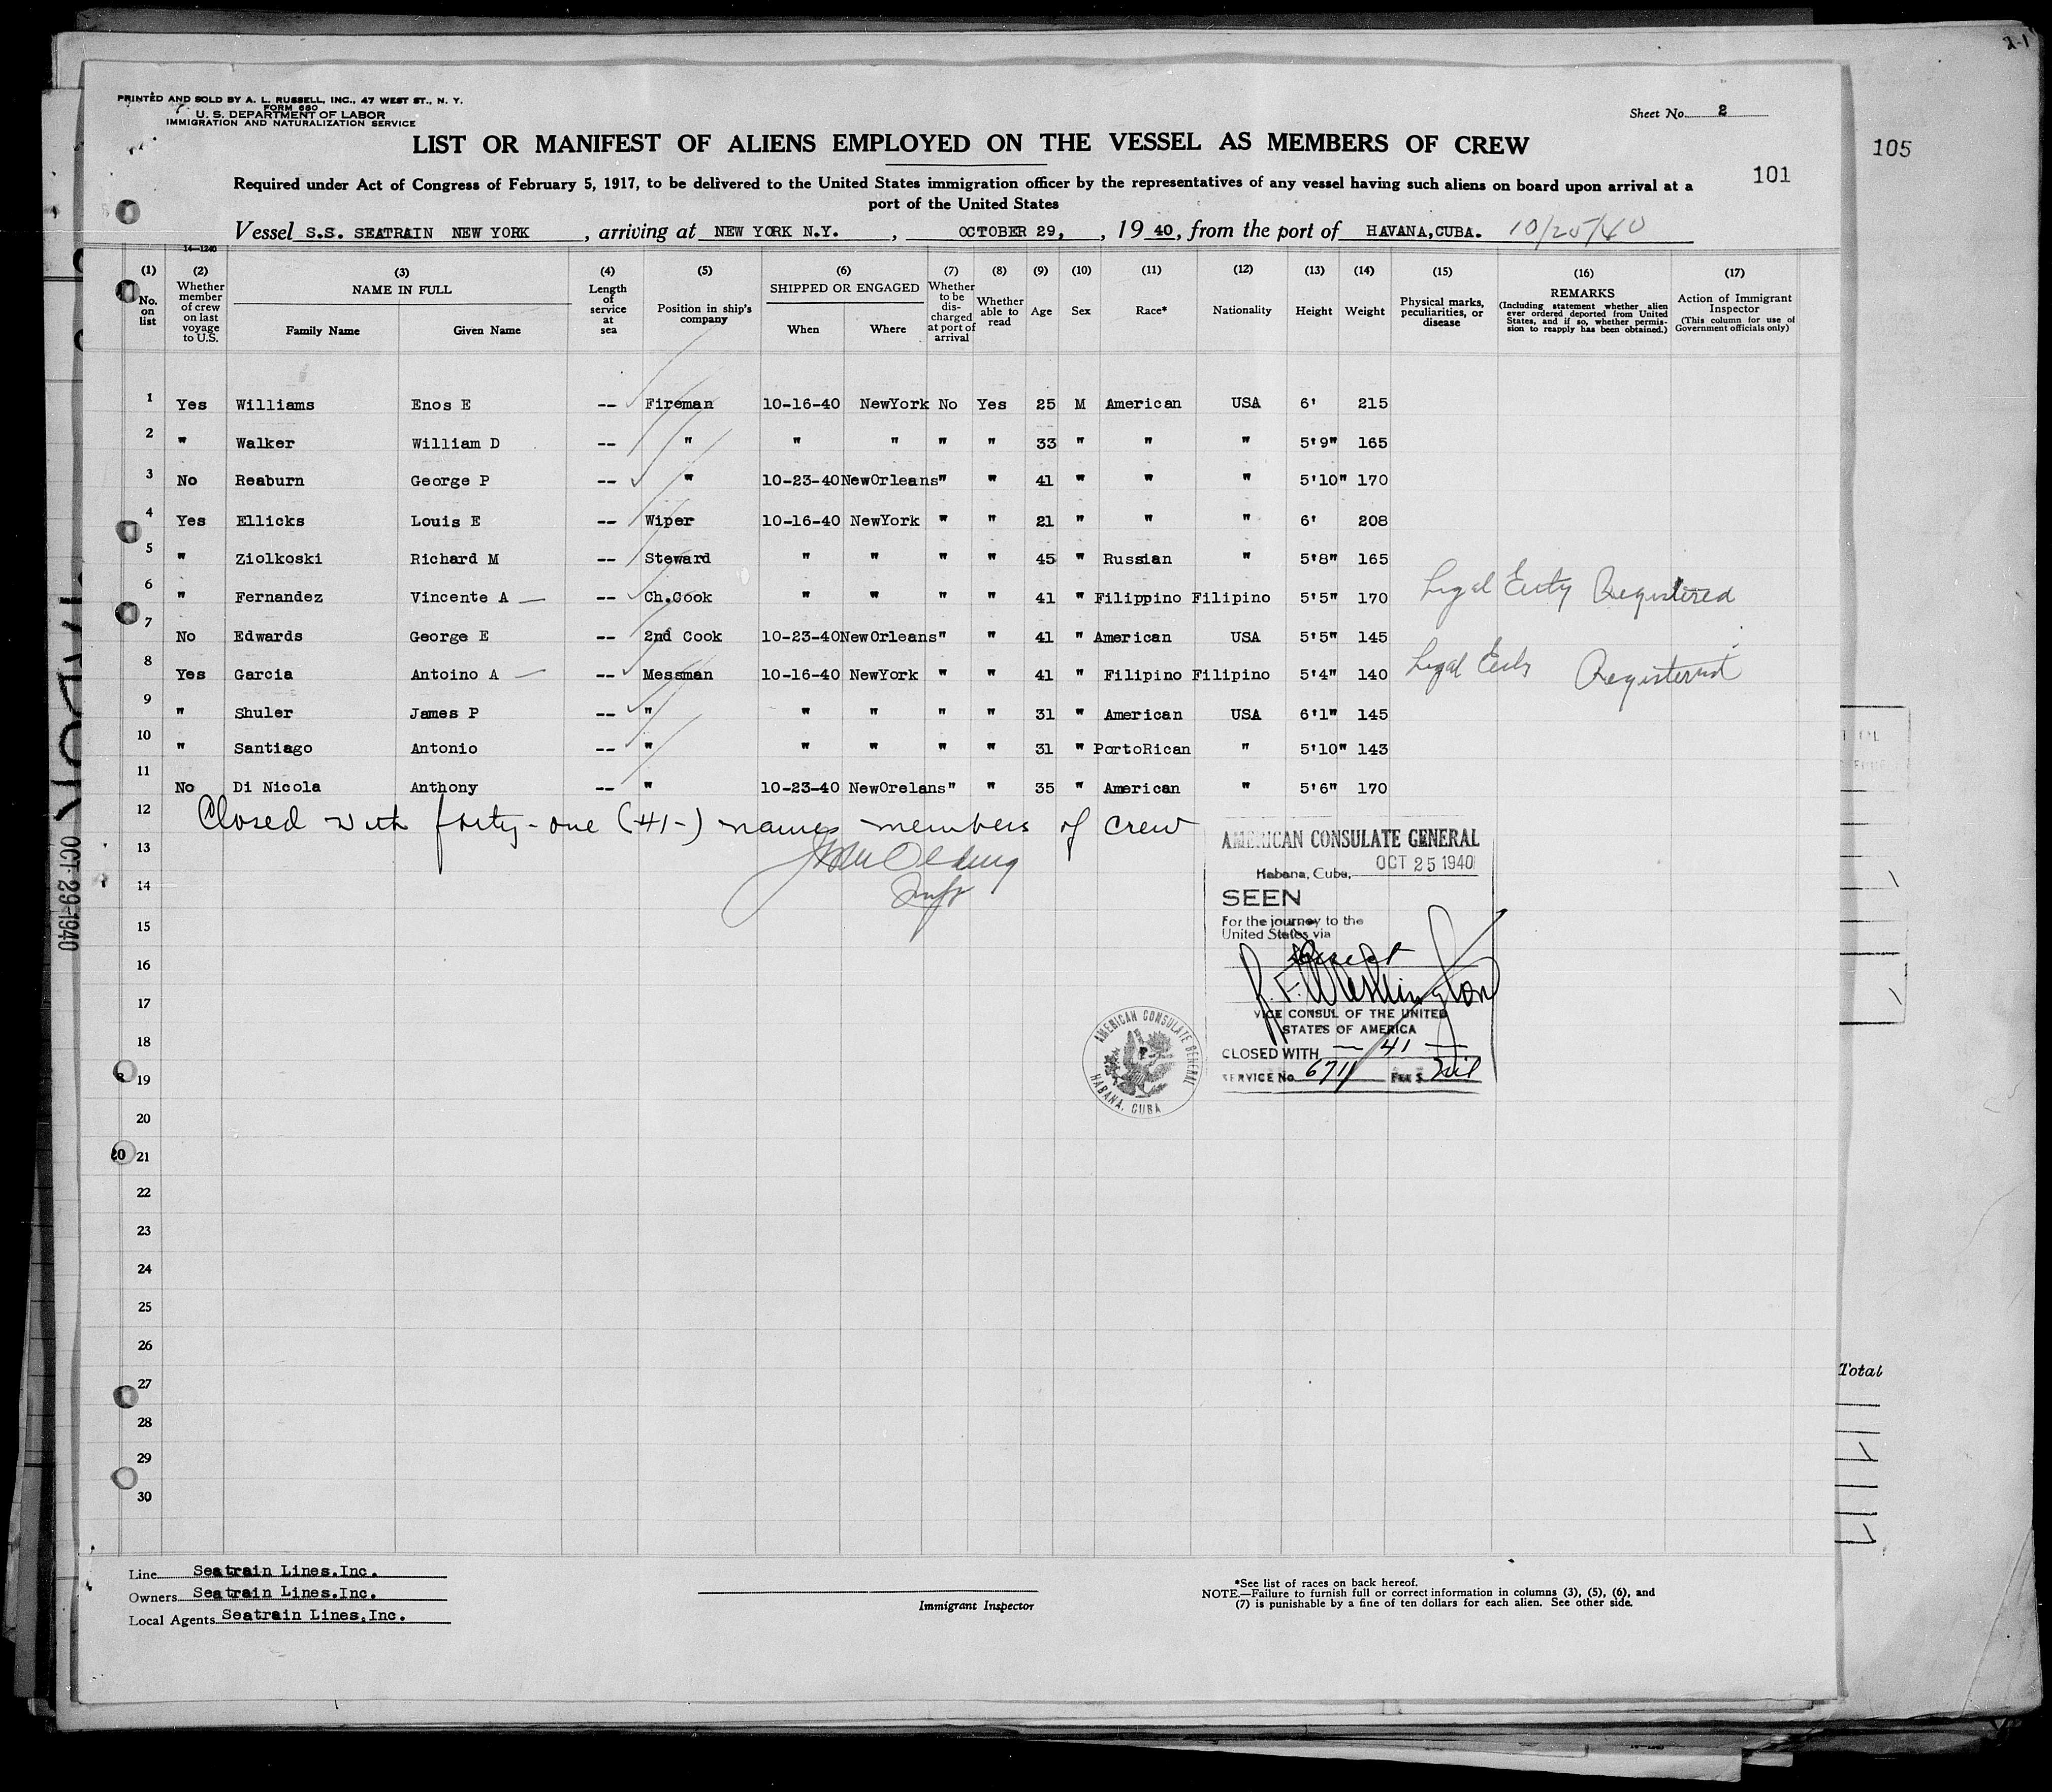 2-1
PRINTED AND SOLD BY A. L. RUSSELL, INC., 47 WEST ST., N. Y.
FORM 680
U. S. DEPARTMENT OF LABOR
IMMIGRATION AND NATURALIZATION SERVICE
Sheet No. 2
LIST OR MANIFEST OF ALIENS EMPLOYED ON THE VESSEL AS MEMBERS OF CREW
105
101
Required under Act of Congress of February 5, 1917, to be delivered to the United States immigration officer by the representatives of any vessel having such aliens on board upon arrival at a
port of the United States
Vessel S.S. SEATRAIN NEW YORK, arriving at NEW YORK N.Y., OCTOBER 29, , 19 40, from the port of HAVANA,CUBA. 10/25/40
14-1240
(1) (2) (3) (4) (5) (6) (7) (8) (9) (10) (11) (12) (13) (14) (15) (16) (17)
No. on list
Whether member of crew on last voyage to U.S.
NAME IN FULL
Family Name Given Name
Length of service at sea
Position in ship's company
SHIPPED OR ENGAGED
When Where
Whether to be discharged at port of arrival
Whether able to read
Age
Sex
Race*
Nationality
Height
Weight
Physical marks, peculiarities, or disease
REMARKS
(Including statement whether alien ever ordered deported from United States, and if so, whether permission to reapply has been obtained.)
Action of Immigrant Inspector
(This column for use of Government officials only)
1 Yes Williams Enos E -- Fireman 10-16-40 NewYork No Yes 25 M American USA 6' 215
2 " Walker William D -- " " " " " 33 " " " 5'9" 165
3 No Reaburn George P -- " 10-23-40 NewOrleans " " 41 " " " 5'10" 170
4 Yes Ellicks Louis E -- Wiper 10-16-40 NewYork " " 21 " " " 6' 208
5 " Ziolkoski Richard M -- Steward " " " " 45 " Russian " 5'8" 165
6 " Fernandez Vincente A -- Ch.Cook " " " " 41 " Filippino Filipino 5'5" 170 Legal Entry Registered
7 No Edwards George E -- 2nd Cook 10-23-40 NewOrleans " " 41 " American USA 5'5" 145
8 Yes Garcia Antoino A -- Messman 10-16-40 NewYork " " 41 " Filipino Filipino 5'4" 140 Legal Entry Registered
9 " Shuler James P -- " " " " " 31 " American USA 6'1" 145
10 " Santiago Antonio -- " " " " " 31 " PortoRican " 5'10" 143
11 No Di Nicola Anthony -- " 10-23-40 NewOrelans " " 35 " American " 5'6" 170
12
Closed with forty-one (-41-) names members of crew
13
14
15
16
17
18
19
20
21
22
23
24
25
26
27
28
29
30
AMERICAN CONSULATE GENERAL
Habana, Cuba, OCT 25 1940
SEEN
For the journey to the
United States via
VICE CONSUL OF THE UNITED
STATES OF AMERICA
CLOSED WITH — 41 —
SERVICE No. 6711 FEE $ nil
AMERICAN CONSULATE GENERAL
HABANA, CUBA
OCT 29 1940
Total
Line Seatrain Lines.Inc.
Owners Seatrain Lines.Inc.
Local Agents Seatrain Lines,Inc.
Immigrant Inspector
*See list of races on back hereof.
NOTE.—Failure to furnish full or correct information in columns (3), (5), (6), and
(7) is punishable by a fine of ten dollars for each alien. See other side.